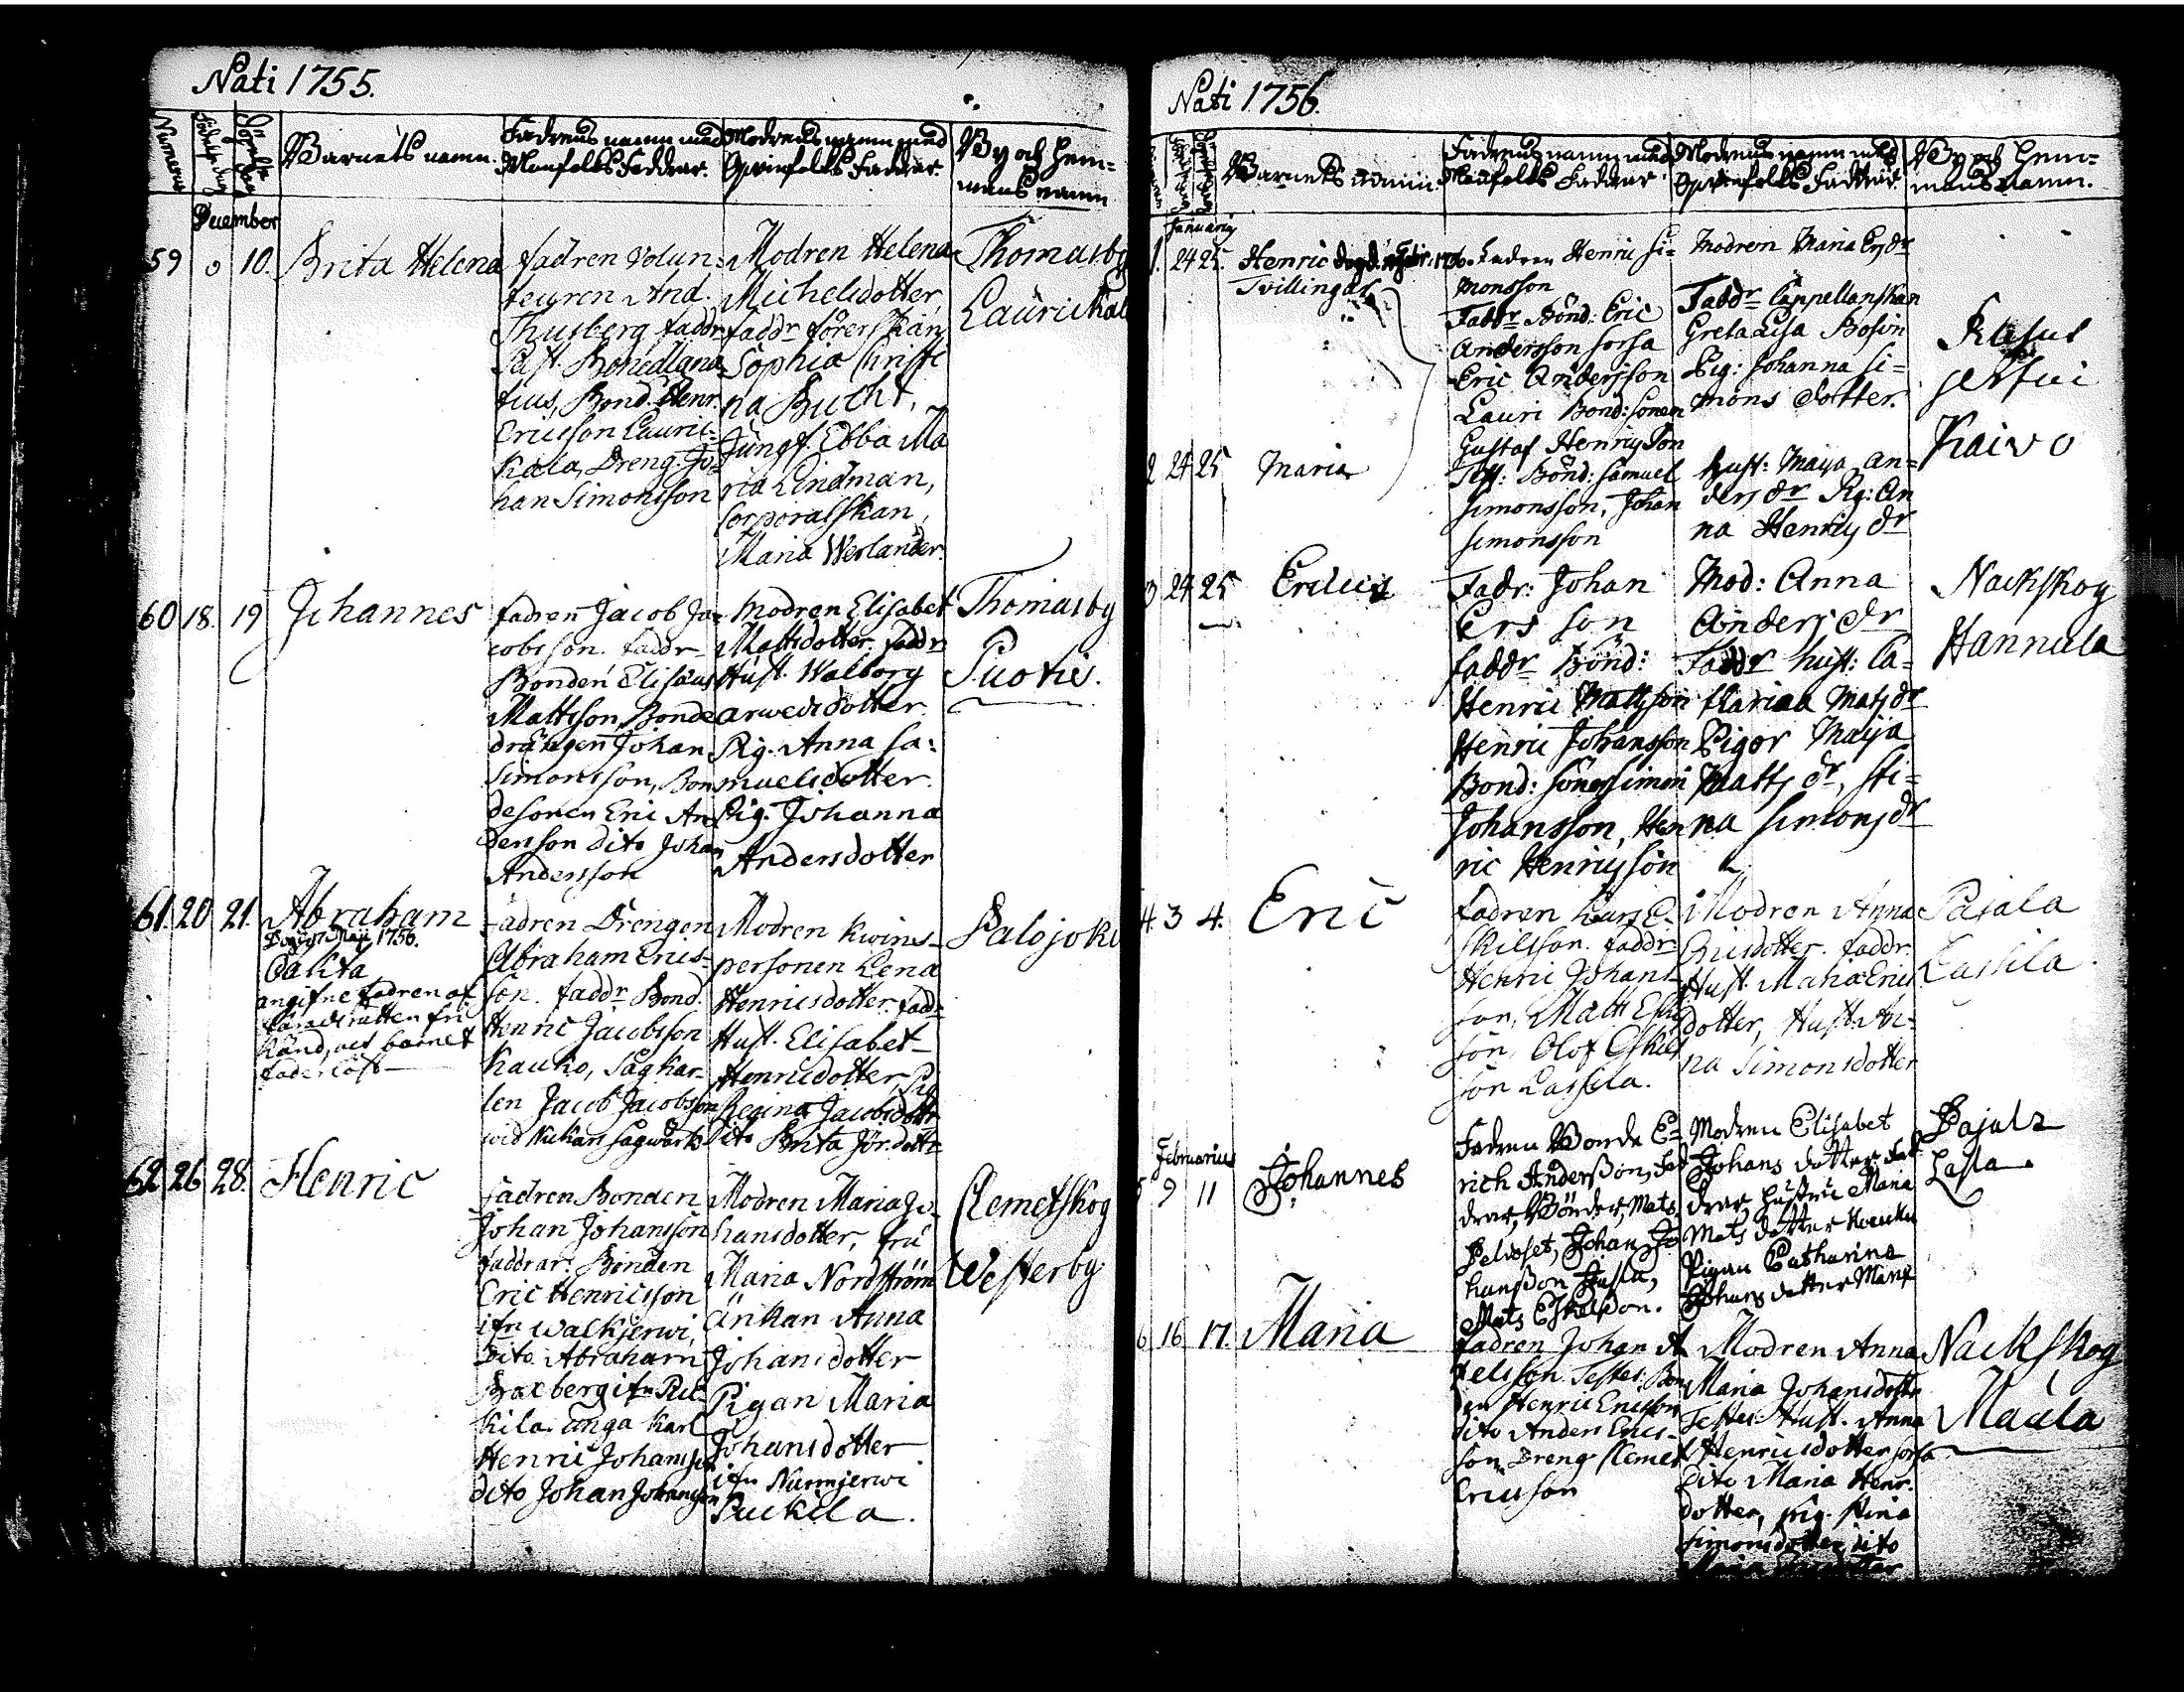 Nati 1755.
Numerus
Barnets namn.
Fadrens namn med
Manfolks Faddrar.
Modrens namn med
Qvinfolks Faddrar.
By och Hem-
mans namn
December
59 0 10. Brita Helena
fadren Volun-
teuren And.
Thusberg faddr
Henr.
Ericsson Lauri-
kala, Dreng. Jo-
han Simonsson
Modren Helena
Michelsdotter,
faddr förerskan
Sophia Christi
na Bucht,
Jungf. Ebba Ma
ria Lindman,
Corporalskan,
Maria Werlander.
Thomasby
Laurikal
60 18. 19 Johannes
fadren Jacob Ja-
cobsson. faddr
Bonden Elisaus
Mattsson, Bonde
drängen Johan
Simonsson, Bon
desonen Eric An
dersson dito Johan
Andersson
Modren Elisabet
Mattsdotter. faddr
Hust. Walborg
Arwedsdotter
Pig. Anna Sa-
muelsdotter
Pig. Johanna
Andersdotter
Thomasby
Puotis.
61. 20 21. Abraham
1756.
Oäkta
angifne fadren af
häradsrätten fri
känd, ock barnet
faderlöst
fadren Drengen
Abraham Erics-
son. faddr Bond.
Henric Jacobsson
Kauko, Sågkar-
len Jacob Jacobsson
wid Nukari Sagwärk
Modren kwins-
personen Lena
Henricsdotter. fadr
Hust. Elisabet
Henricsdotter, Pig
Regina Jacobsdottr
dito Brita Jör. dottr
Palojoki
62 26 28. Henric
fadren Bonden
Johan Johansson
faddrar. Bonden
Eric Henricsson
ifrn Walkjerwi,
Dito Abraham
ifrn Puc
kila. unga karl
Henric Johansson
dito Johan Johansson
Modren Maria Jo-
hansdotter, fru
Maria Nordström
änkan Anna
Johansdotter
Pigan Maria
Johansdotter
ifrn Nurmjerwi
Puckila.
Clemetskog
Westerby
Nati 1756.
Barnets namn.
Fadrens namn med
Manfolks Faddrar.
Modrens namn med
Qvinfolks Faddrar.
By och Hem-
mans namn.
Januarij
1. 24 25. Henric
Tvillingar
Fadren Henric Si-
monsson
Faddr Bond: Eric
Andersson Sorsa
Eric Andersson
Lauri Bond: sonen
Gustaf Henricsson
Modren Maria Ersdr
Faddr Cappellanskan
Greta Lisa Bosin
Pig: Johanna Si-
mons dotter.
Kaivo
2 24 25 Maria
Test: Bond: Samuel
Simonsson, Johan
Simonsson
Hust: Maja An-
dersdr Pig: An
na Henricsdr
3 24 25 Ericus
Fadr: Johan
Ersson
faddr Bond:
Henric Mattsson
Henric Johansson
Bond: söner Simon
Johansson, Hen
ric Henricsson
Mod: Anna
Andersdr
Faddr hust: Ca-
tharina Matsdr
Pigor Maija
Mattsdr, Sti-
na Simonsdr
Nackskog
Hannula
4. 3 4. Eric
fadren Lars E-
skilsson. faddr
Henric Johans-
son, Matts Eskils
son, Olof Eskils
son Lassila.
Modren Anna
Ericsdotter. faddr.
Hust. Maria Erics
dotter, Hust. An-
na Simonsdotter
Pajala
Lassila.
Februarius
5 9 11 Johannes
Fadren Bonde E-
rich Andersson, Fad
drar, Bönder, Mats
Johan Jo
hansson
Mats Eskilsson.
Modren Elisabet
Johans dotter, Fad
drar, Hustru Maria
Mats dotter
Pigan Catharina
Johans dotter
Pajala
6 16 17. Maria
fadren Johan A
xelsson. Testes: Bon
den Henric Ericsson
dito Anders Erics-
son, Dreng Clemet
Ericsson
Modren Anna
Maria Johansdotter
Testes. Hust. Anna
Henricsdotter Sorsa
Dito Maria Henr.
dotter, pig. Stina
Simonsdotter, dito
Nackskog
Maula